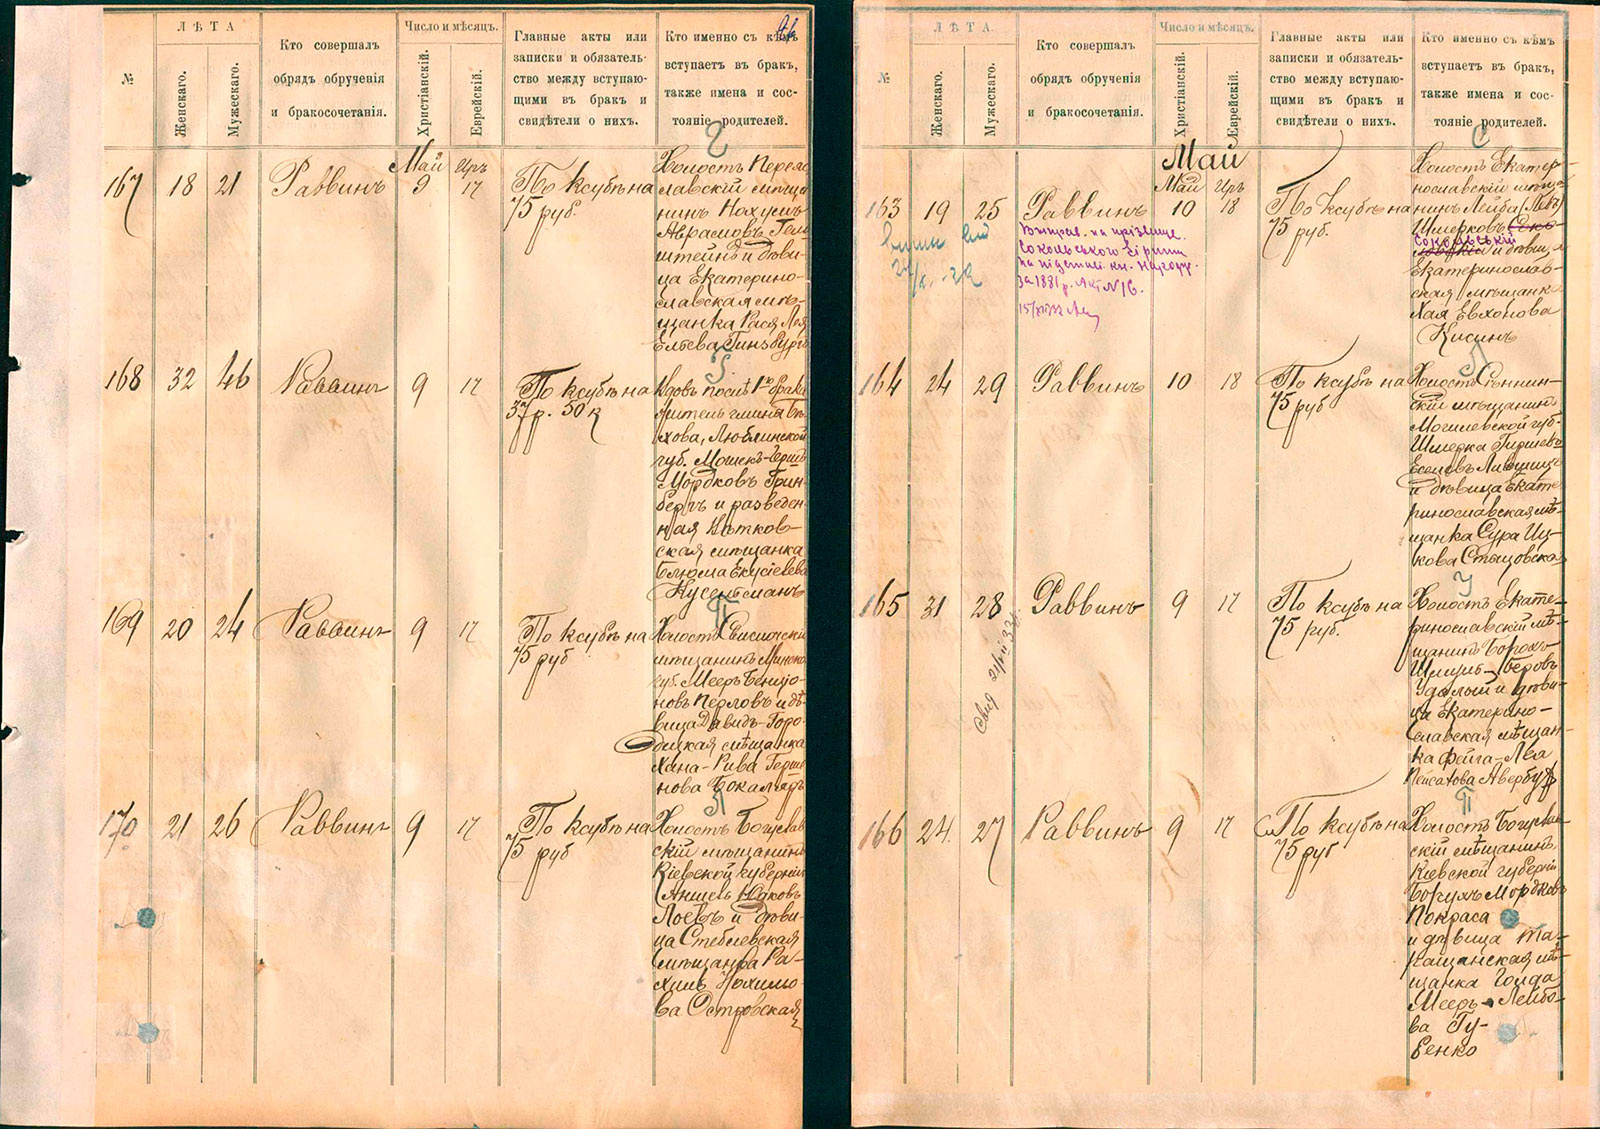 №
ЛѢТА
Женскаго.
Мужескаго.
Кто совершалъ
обрядъ обрученія
и бракосочетанія.
Число и мѣсяцъ.
Христіанскій.
Еврейскій.
Главные акты или
записки и обязатель-
ство между вступаю-
щими въ бракъ и
свидѣтели о нихъ.
Кто именно съ кѣмъ
вступаетъ въ бракъ,
также имена и сос-
тояніе родителей.
Г
Май Иръ
167 18 21 Раввинъ 9 17
По ксубѣ на
75 руб.
Холостъ Перея
славскій мѣща
нинъ Нахумъ
Аврамовъ Гель
штейнъ и дѣви
ца Екатерино
славская мѣ-
щанка Рася Лея
Ельева Гинзбургъ
168 32 46 Раввинъ 9 17
По ксубѣ на
37 р. 50 к
Вдовъ послѣ 1го брака
житель гмины Бы
хова, Люблинской
губ. Мошек-Герш
Мордковъ Грин-
бергъ и разведен
ная
ская мѣщанка
Блюма Екусіелева
П
169 20 24 Раввинъ 9 17
По ксубѣ на
75 руб
Холостъ
мѣщанинъ Минской
губ. Мееръ Бенціо-
новъ Перловъ и дѣ-
вица Давидъ-Горо-
дицкая мѣщанка
Хана-Рива Герше
нова
Л
170 21 26 Раввинъ 9 17
По ксубѣ на
75 руб
Холостъ Богуслав
скій мѣщанинъ
Кіевской губерніи
Аншель Юдковъ
Лоевъ и дѣви-
ца Стеблевская
мѣщанка Ра-
хиль Нохимо-
ва Островская
№
ЛѢТА.
Женскаго.
Мужескаго.
Кто совершалъ
обрядъ обрученія
и бракосочетанія.
Число и мѣсяцъ.
Христіанскій.
Еврейскій.
Главные акты или
записки и обязатель-
ство между вступаю-
щими въ бракъ и
свидѣтели о нихъ.
Кто именно съ кѣмъ
вступаетъ въ бракъ,
также имена и сос-
тояніе родителей.
С
Май
Май Иръ
163 19 25 Раввинъ 10 18
По ксубѣ на
75 руб.
Холостъ Екатер-
инославскій мѣща
нинъ Лейба (Левъ)
Шмерковъ
Сокольскій
и дѣвица
Екатеринослав-
ская мѣщанка
Хая Евхонова
Кисинъ
на прізвище
Сокольського
на підставі кн. народж.
за 1881 р. Акт N 16.
Л
164 24 29 Раввинъ 10 18
По ксубѣ на
75 руб
Холостъ Сѣннин-
скій мѣщанинъ
Могилевской губ.
Шмерка Гиршевъ
Еселевъ Лившицъ
и дѣвица Екате
ринославская мѣ-
щанка Сура Иц-
кова
У
165 31 28 Раввинъ 9 17
По ксубѣ на
75 руб.
Холостъ Екате-
ринославскій мѣ-
щанинъ Борохъ
Шмуль-Беровъ
Удалый и дѣви-
ца Екатерино-
славская мѣщан-
ка Фейга-Леа
Пейсахова Авербухъ
П
166 24. 27 Раввинъ 9 17
По ксубѣ на
75 руб
Холостъ Богуслав-
скій мѣщанинъ
Кіевской губерніи
Борухъ Мордковъ
Покраса
и дѣвица Та-
ращанская мѣ-
щанка Голда
Мееръ-Лейбо-
ва Гу-
бенко